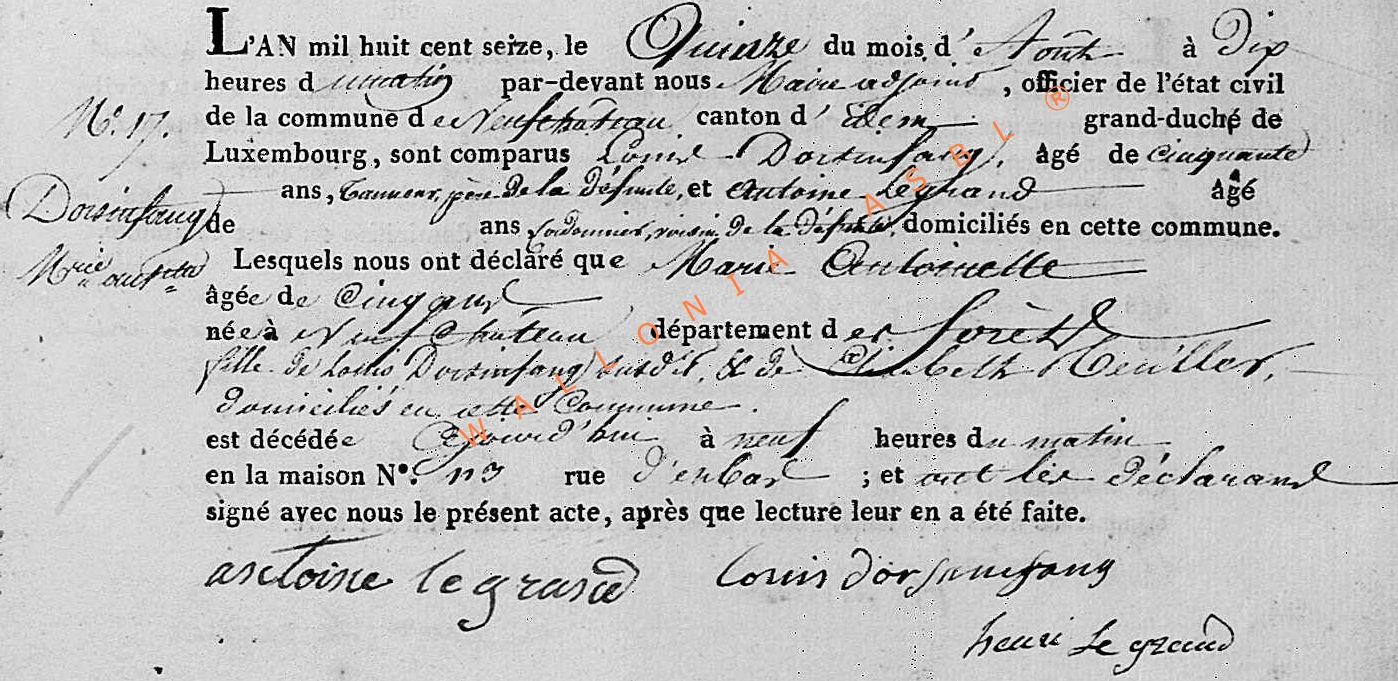 L'AN mil huit cent seize, le Quinze du mois d'Aoút à Dix
heures du matin par-devant nous Maire adjoint, officier de l'état civil
N.º 17. de la commune de Neufchateau canton d'Idem grand-duché de
Luxembourg, sont comparus Louis Dorsinfang, âgé de Cinquante
ans, tanneur, père de la défunte, et antoine Legrand âgé
Dorsinfang
de ans cordonnier, voisin de la défunte, domiciliés en cette commune.
Mrie
Lesquels nous ont déclaré que Marie Antoinette
âgée de Cinq ans
née à Neufchateau département des forêts
fille de Louis Dorsinfang susdit, & de Elisabeth
domiciliés en cette Commune.
est décédée aujourd'hui à neuf heures du matin
en la maison N.º 113 rue d'enbas ; et ont les déclarans
signé avec nous le présent acte, après que lecture leur en a été faite.
antoine legrand louis dorsinfang
henri Le grand
WALLONIA ASBL ®